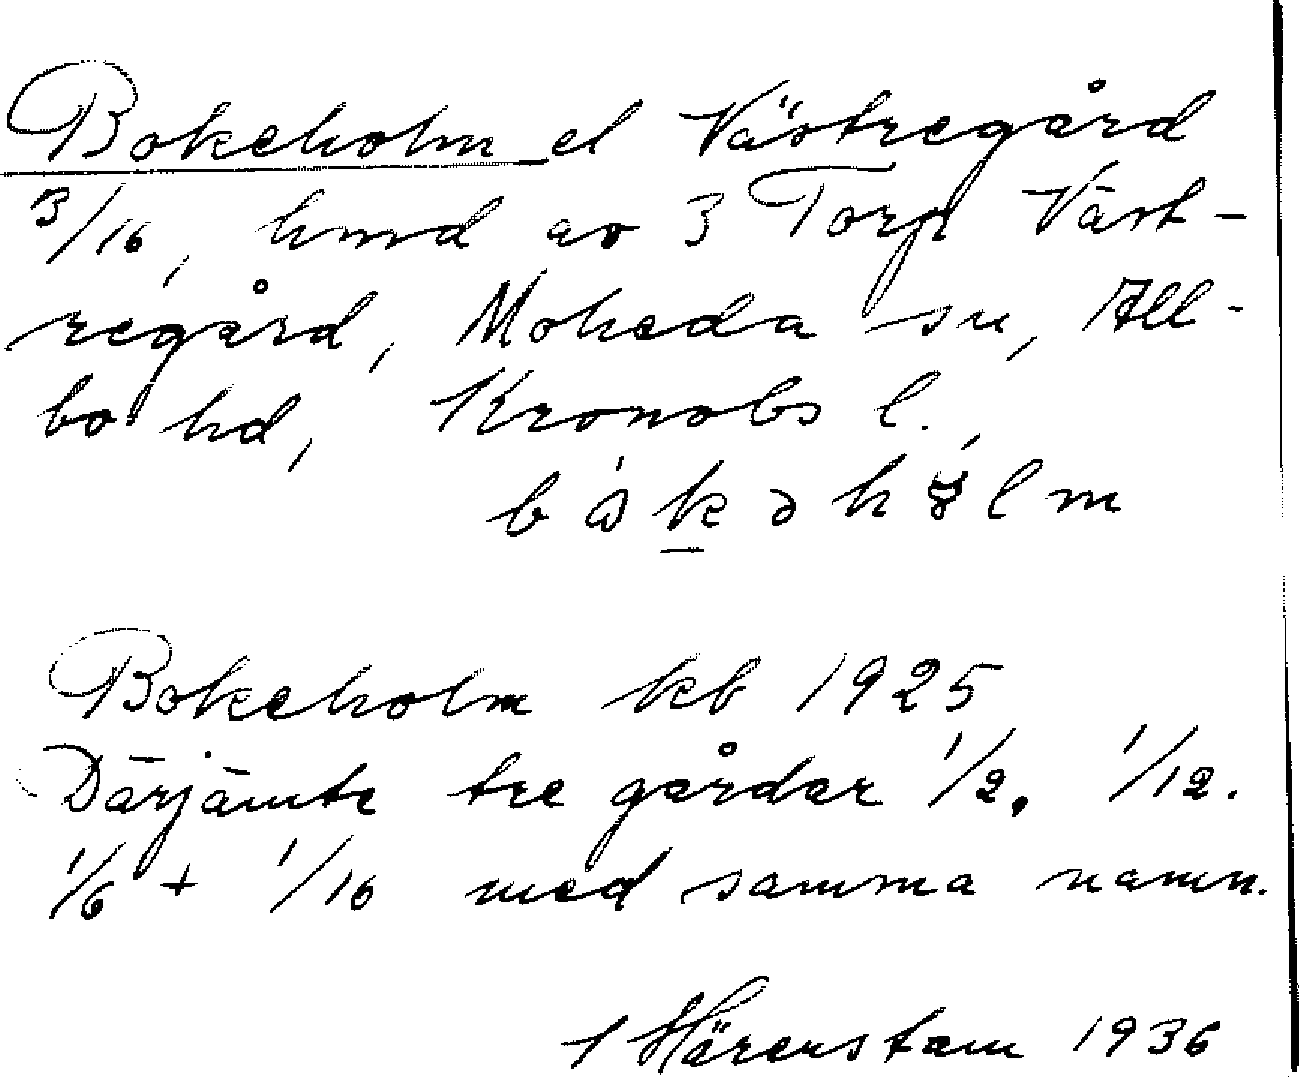 Bokeholm el Västregård
3/16, hmd av 3 Torp Väst-
regård, Moheda sn, All-
bo hd, Kronobs l.,
bokeholm kb 1925
Därjämte tre gårdar 1/2, 1/12.
1/6 + 1/16 med samma namn.
1936